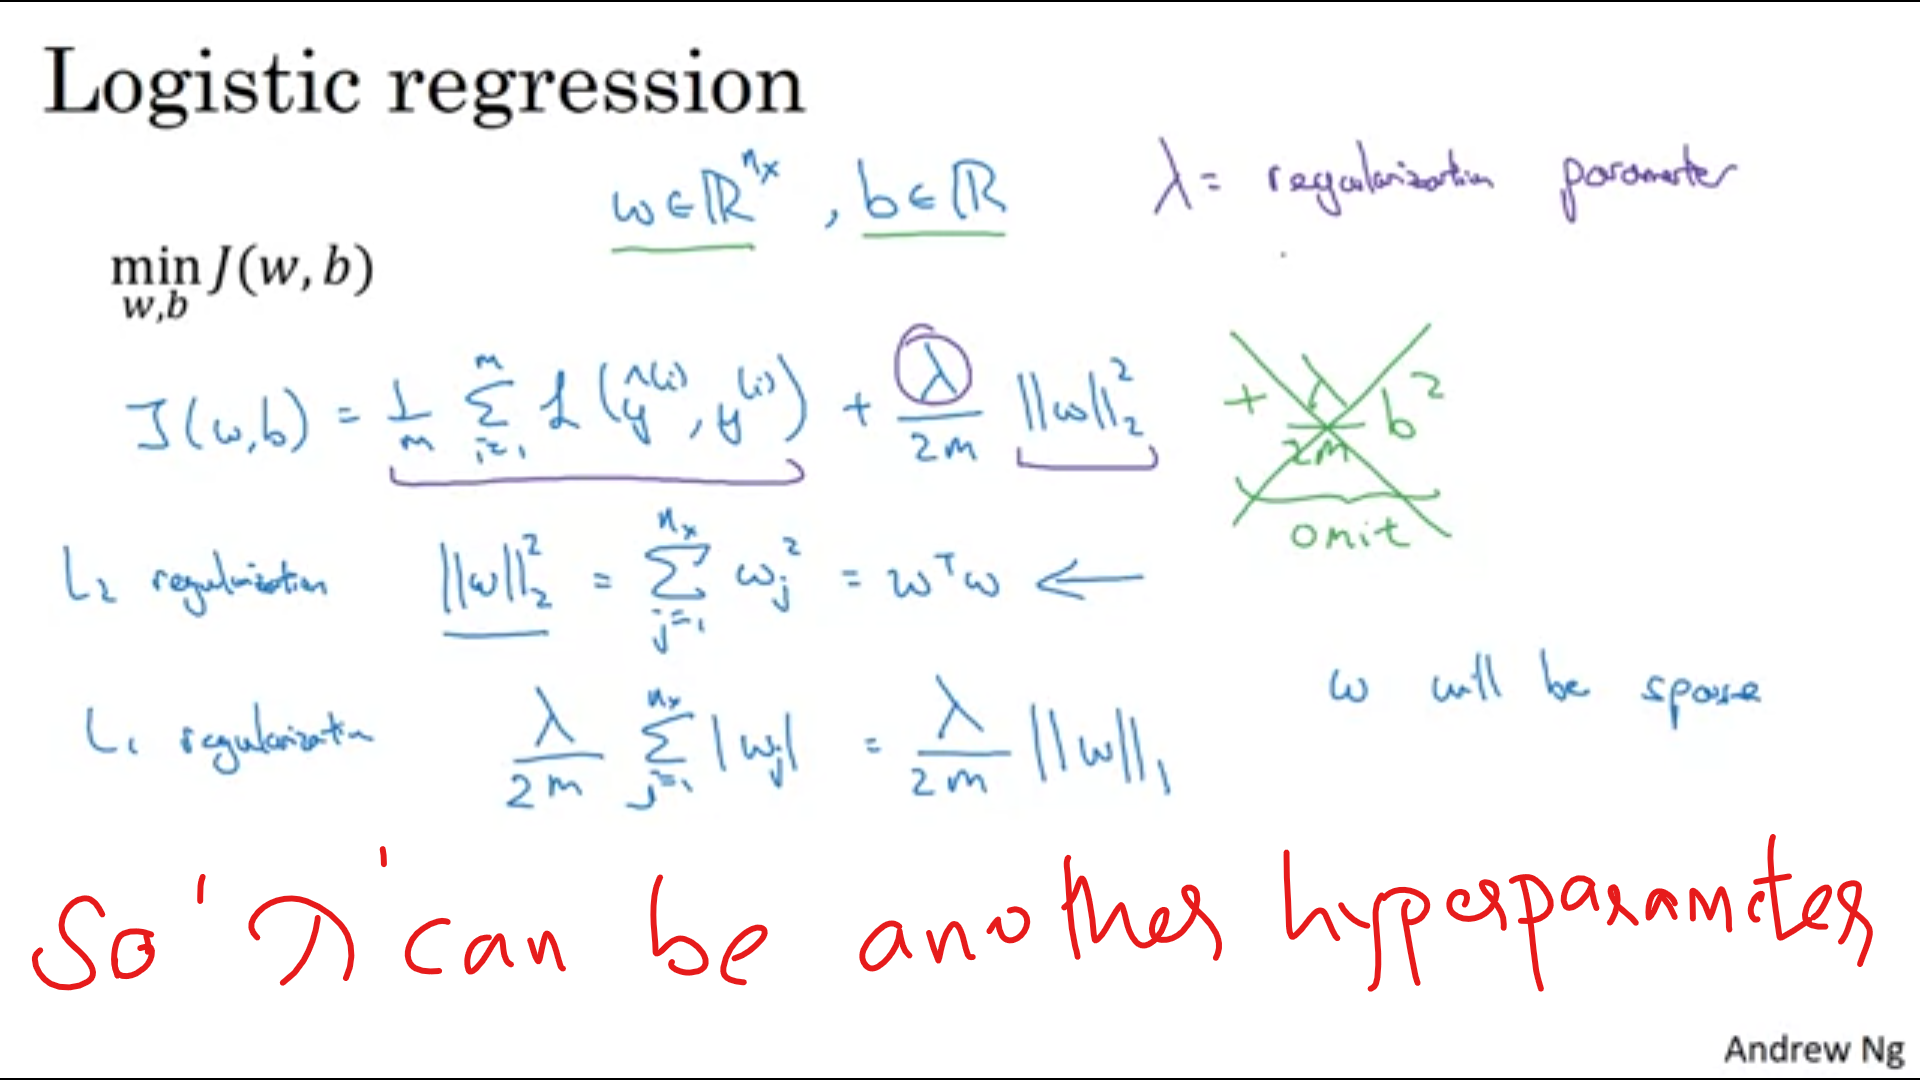 Logistic regression
w ∈ ℝ^{n_x} , b ∈ ℝ
λ = regularization parameter
min_{w,b} J(w, b)
J(w,b) = 1/m Σ_{i=1}^{m} ℒ(ŷ^{(i)}, y^{(i)}) + λ/2m ||w||_2^2 + λ/2m b^2
omit
L_2 regularization ||w||_2^2 = Σ_{j=1}^{n_x} w_j^2 = w^T w ←
L_1 regularization λ/2m Σ_{j=1}^{n_x} |w_j| = λ/2m ||w||_1
w will be sparse
So 'λ' can be another hyperparameter
Andrew Ng